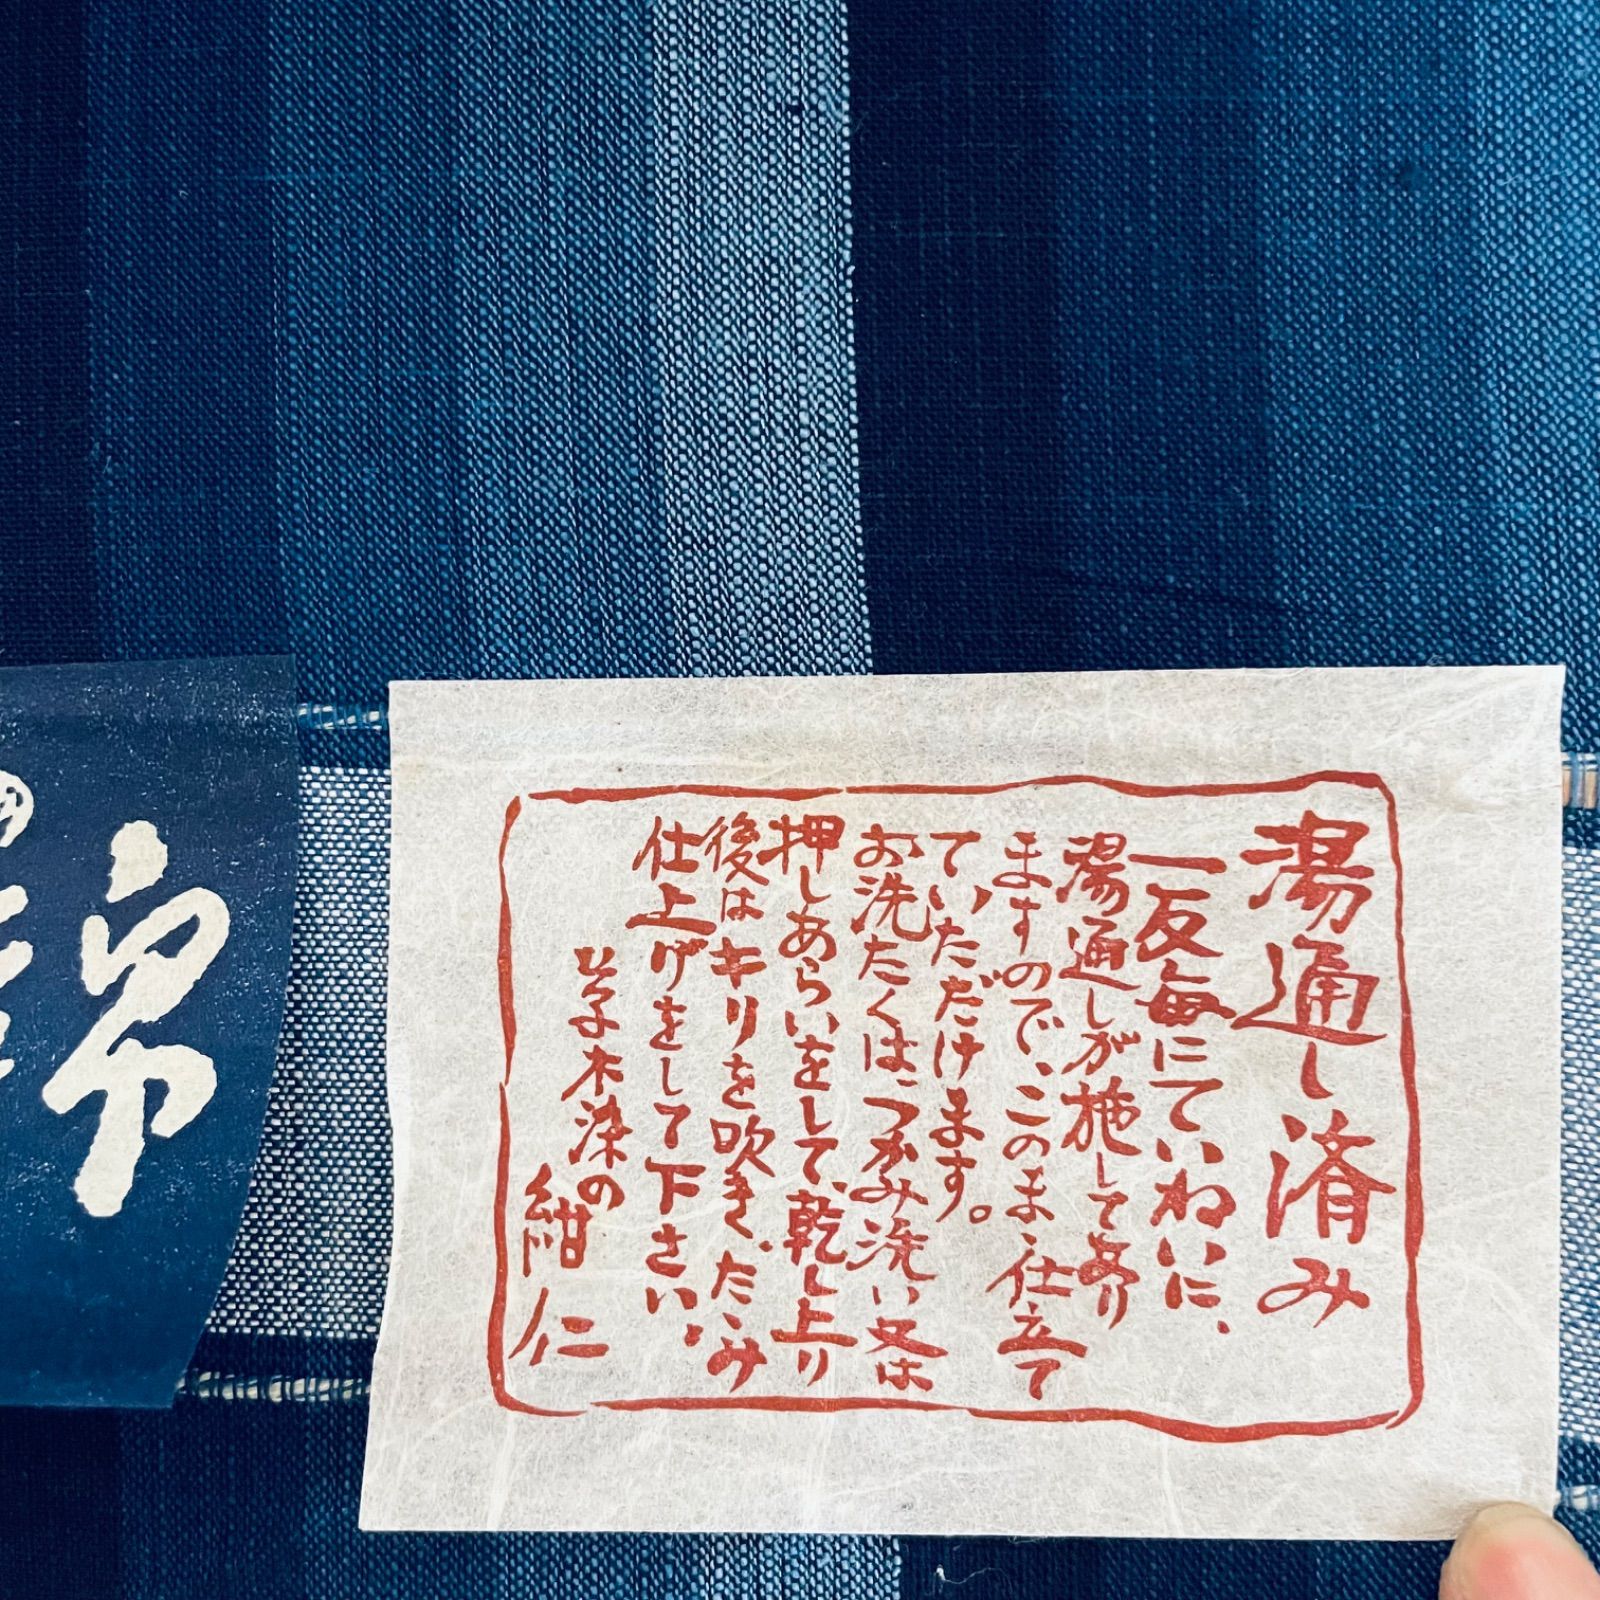 湯通し済み
一反毎にていねいに、
湯通しが施してあり
ますので、このまゝ仕立て
ていただけます。
お洗たくは、つかみ洗い又は
押しあらいをして、乾し上り
後はキリを吹き、たゝみ
仕上げをして下さい。
草木染の
紺仁